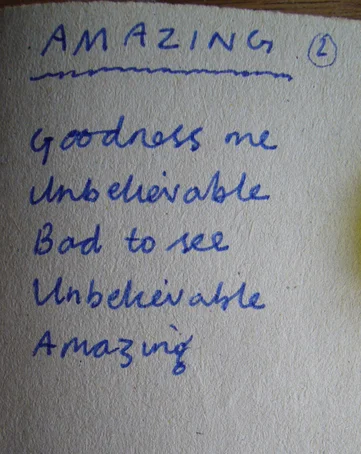 AMAZING ②
Goodness me
Unbelievable
Bad to see
Unbelievable
Amazing